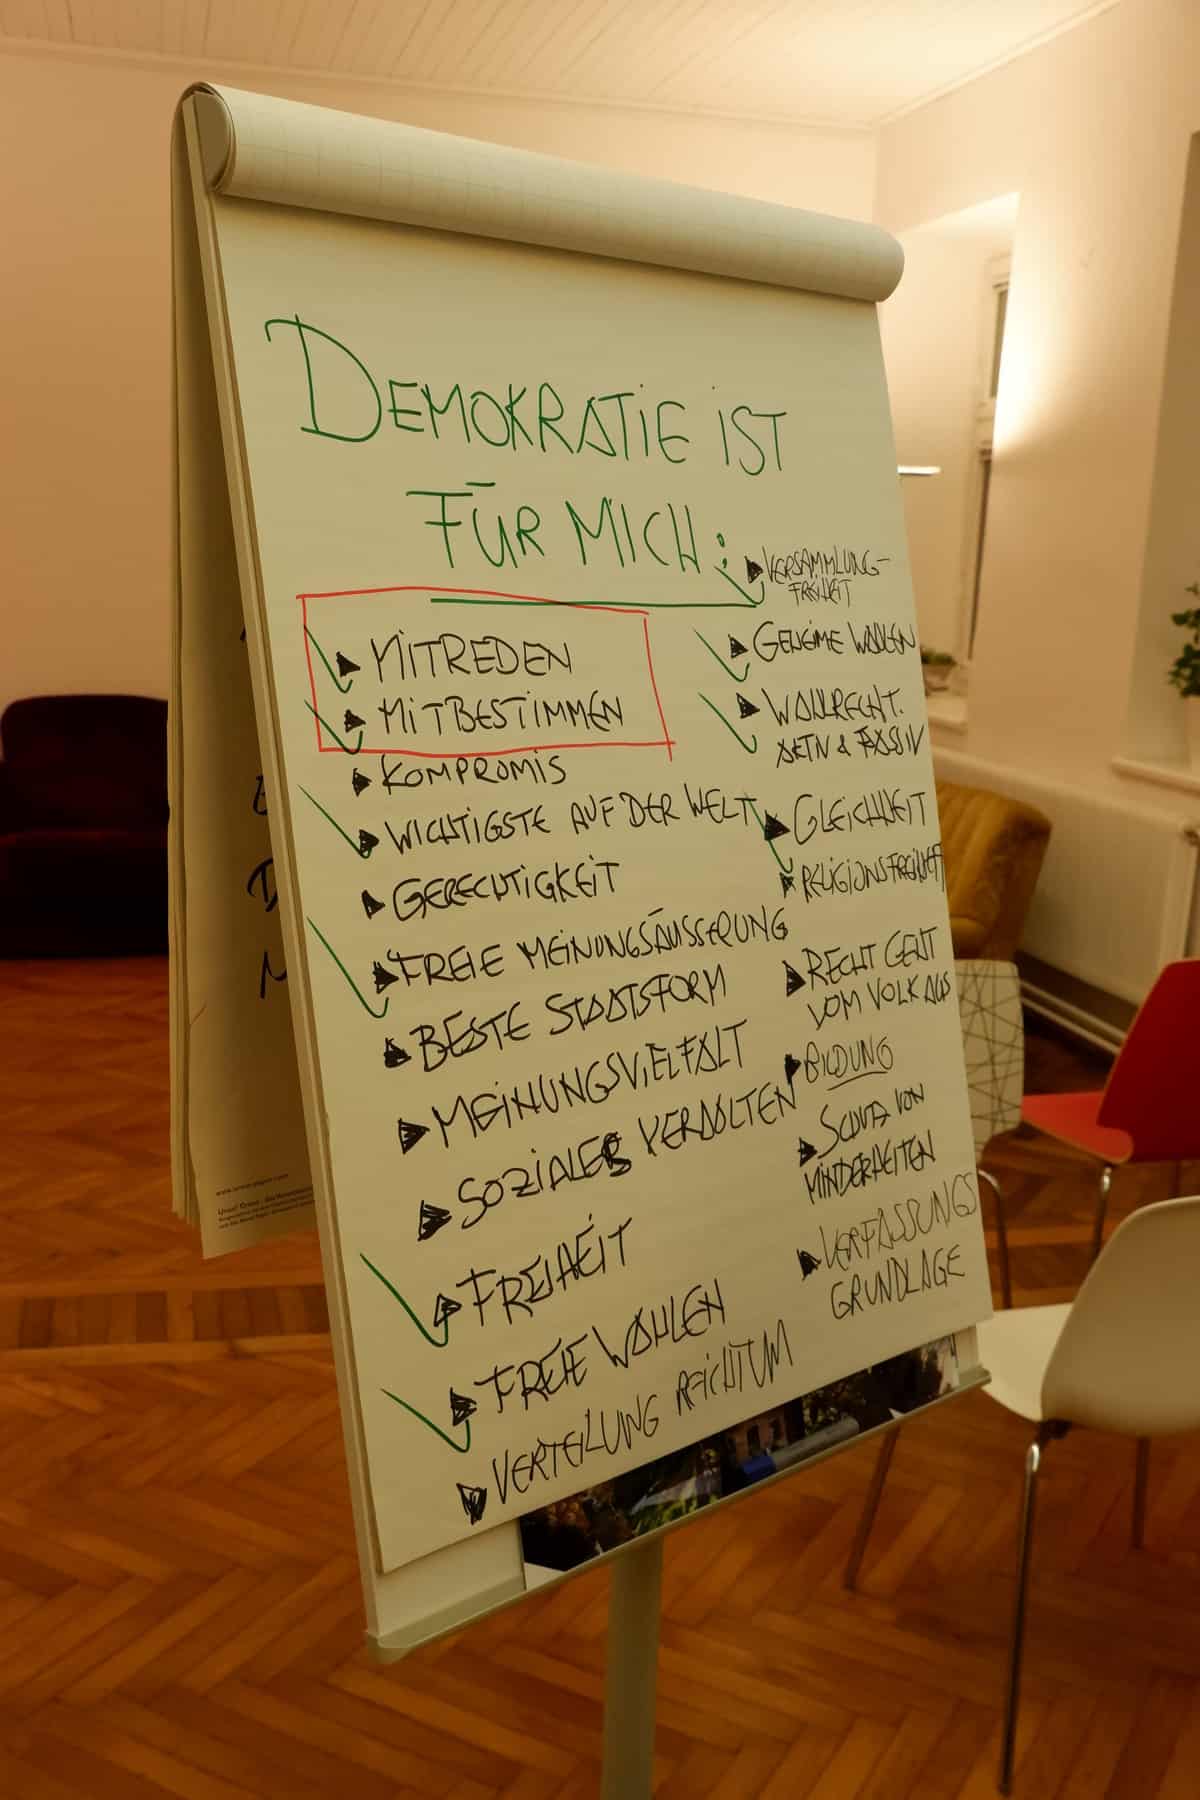 DEMOKRATIE IST
FÜR MICH:
MITREDEN
MITBESTIMMEN
KOMPROMIS
WICHTIGSTE AUF DER WELT
GERECHTIGKEIT
FREIE MEINUNGSÄUSSERUNG
BESTE STAATSFORM
MEINUNGSVIELFALT
SOZIALES VERHALTEN
FREIHEIT
FREIE WAHLEN
VERTEILUNG REICHTUM
VERSAMMLUNG-
FREIHEIT
GEHEIME WAHLEN
WAHLRECHT.
AKTIV & PASSIV
GLEICHHEIT
RELIGIONSFREIHEIT
RECHT GEHT
VOM VOLK AUS
BILDUNG
SCHUTZ VON
MINDERHEITEN
VERFASSUNGS
GRUNDLAGE